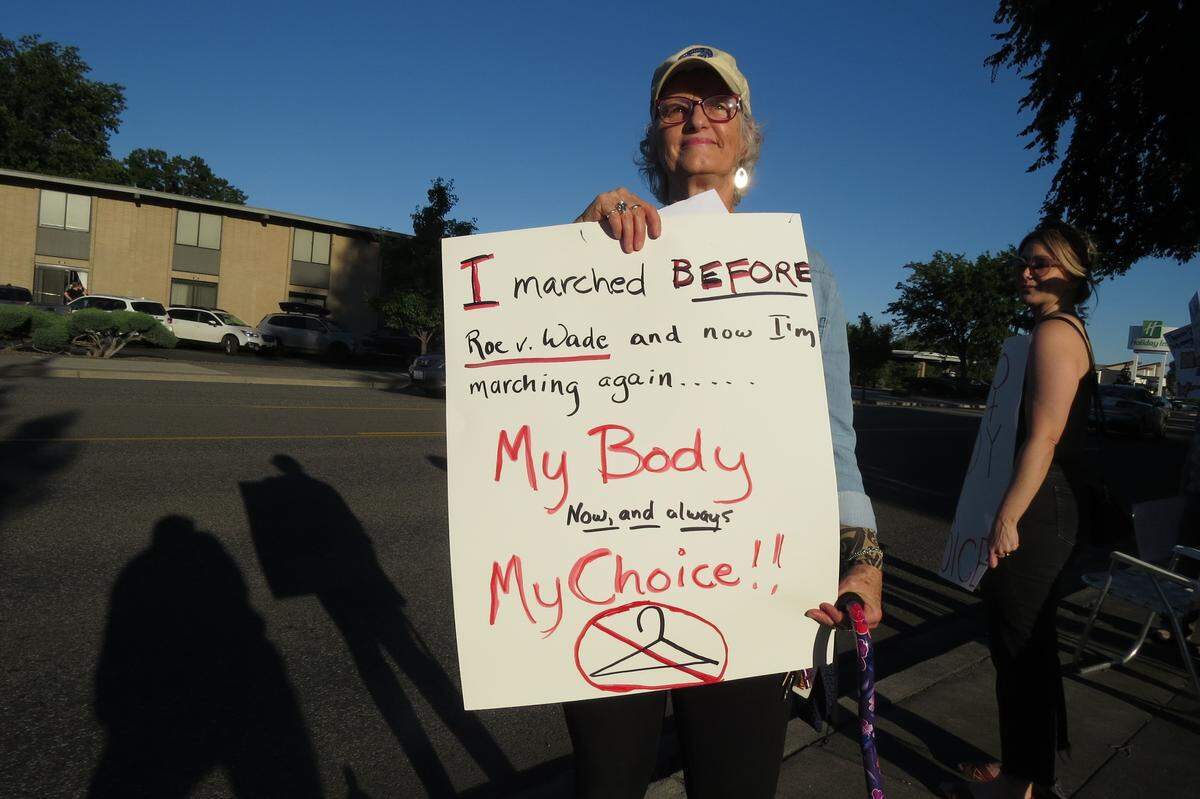 I marched BEFORE
Roe v. Wade and now I'm
marching again.....
My Body
Now, and always
My Choice!!
Holiday Inn